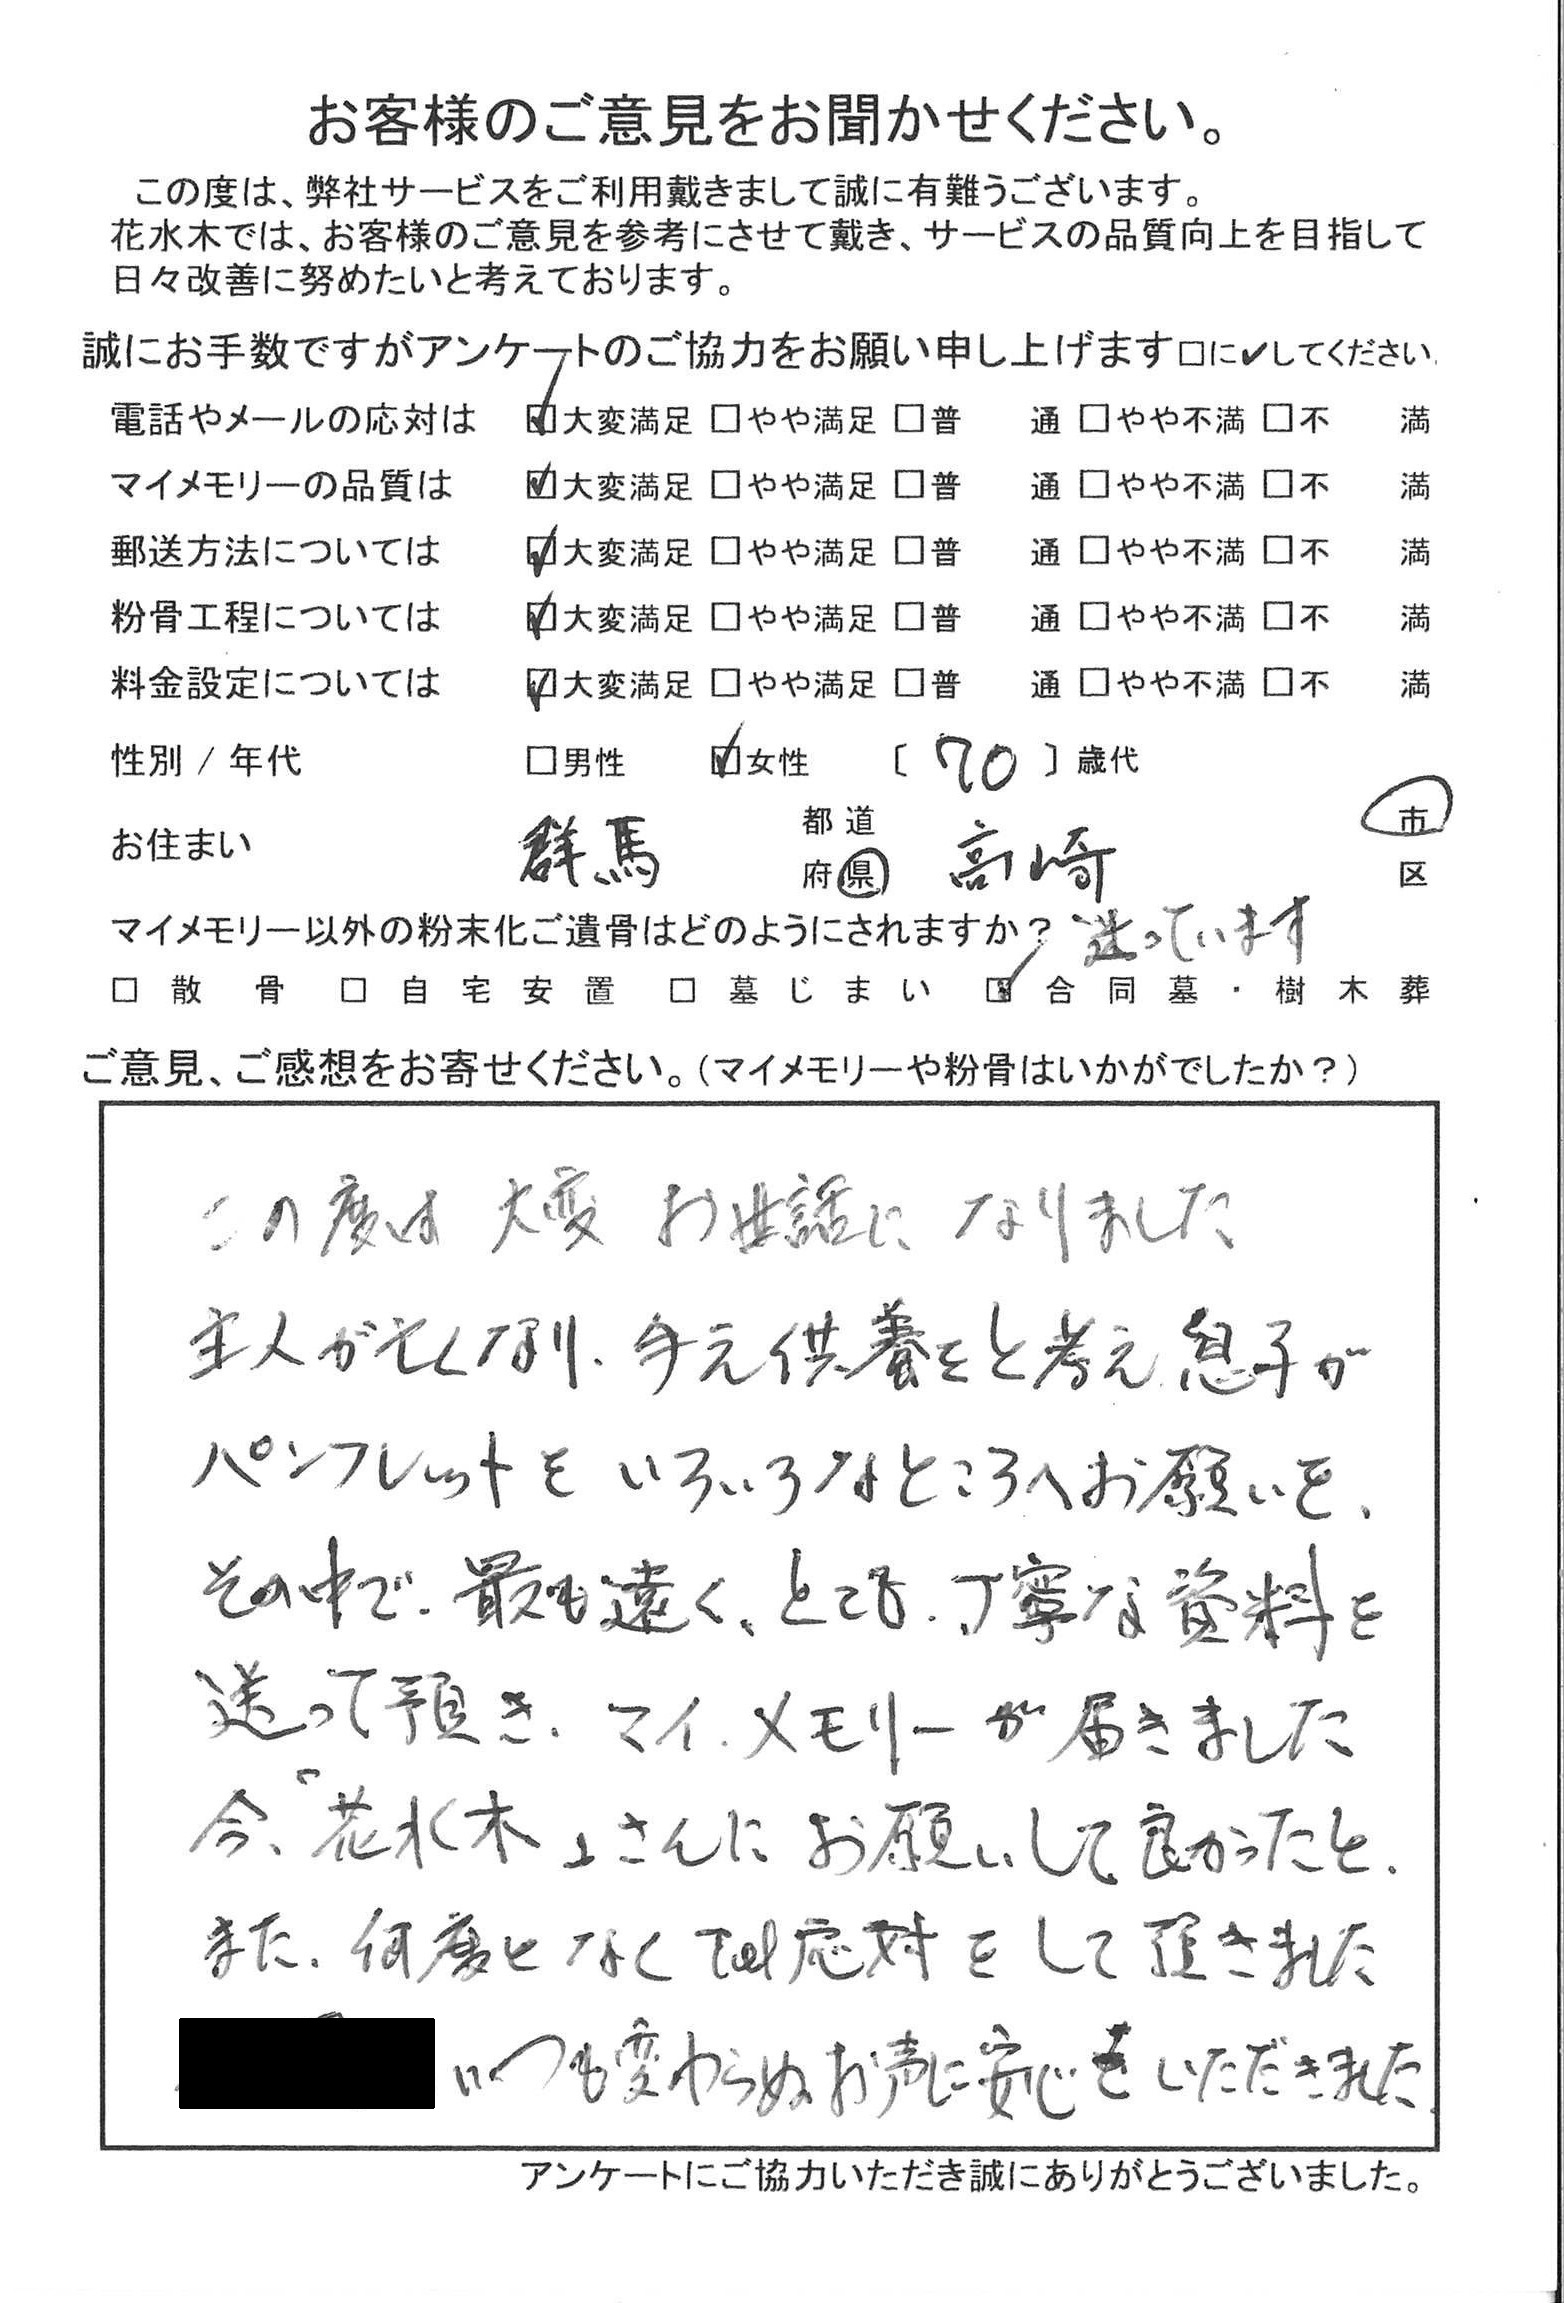 お客様のご意見をお聞かせください。
この度は、弊社サービスをご利用戴きまして誠に有難うございます。
花水木では、お客様のご意見を参考にさせて戴き、サービスの品質向上を目指して
日々改善に努めたいと考えております。
誠にお手数ですがアンケートのご協力をお願い申し上げます□に✔してください。
電話やメールの応対は ☑大変満足 □やや満足 □普 通 □やや不満 □不 満
マイメモリーの品質は ☑大変満足 □やや満足 □普 通 □やや不満 □不 満
郵送方法については ☑大変満足 □やや満足 □普 通 □やや不満 □不 満
粉骨工程については ☑大変満足 □やや満足 □普 通 □やや不満 □不 満
料金設定については ☑大変満足 □やや満足 □普 通 □やや不満 □不 満
性別 / 年代 □男性 ☑女性 〔 70 〕歳代
お住まい 群馬 都道府県 高崎 市区
マイメモリー以外の粉末化ご遺骨はどのようにされますか? 迷っています
□ 散骨 □ 自宅安置 □ 墓じまい ☑ 合同墓・樹木葬
ご意見、ご感想をお寄せください。(マイメモリーや粉骨はいかがでしたか?)
この度は 大変 お世話に なりました
主人が亡くなり、手元供養をと考え 息子が
パンフレットを いろいろなところへお願いを、
その中で、最も遠く、とても、丁寧な資料を
送って頂き、マイ.メモリーが届きました
今、「花水木」さんに お願いして良かったと、
また、何度となく Tel応対を して頂きました
いつも変わらぬお声に安心をいただきました
アンケートにご協力いただき誠にありがとうございました。